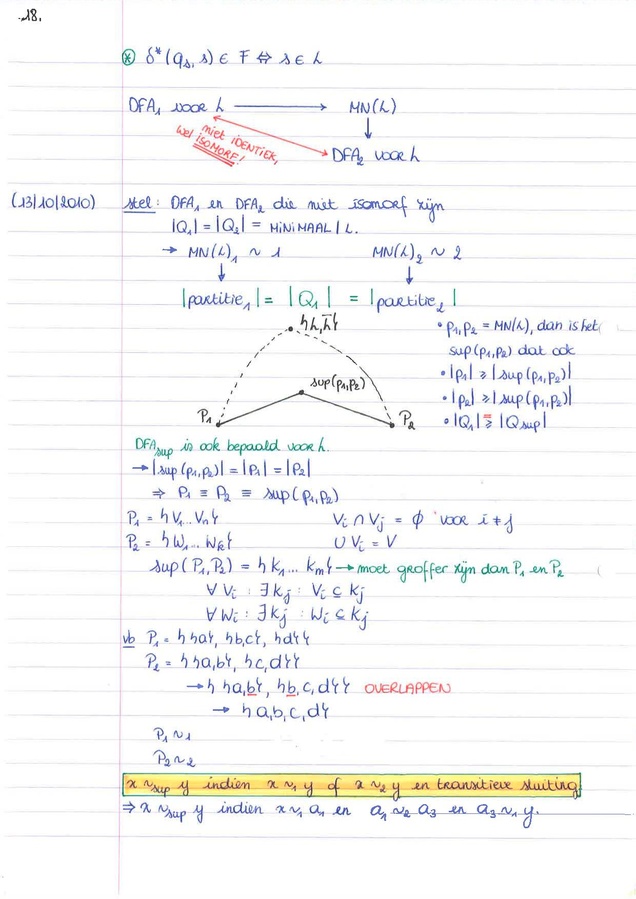 18.
⊛ δ*(qs, s) ∈ F ⇔ s ∈ L
DFA₁ voor L → MN(L)
niet IDENTIEK,
wel ISOMORF!
↓
DFA₂ voor L
(13/10/2010) stel: DFA₁ en DFA₂ die niet isomorf zijn
|Q₁| = |Q₂| = MINIMAAL | L.
→ MN(L)₁ ~ 1 MN(L)₂ ~ 2
↓ ↓
|partitie₁| = |Q₁| = |partitie₂|
{L, L̅}
• p₁, p₂ = MN(L), dan is het
sup(p₁,p₂) dat ook
sup(p₁,p₂)
• |p₁| ≥ |sup(p₁,p₂)|
• |p₂| ≥ |sup(p₁,p₂)|
P₁ P₂
• |Q₁| ≥ |Qsup|
DFAsup is ook bepaald voor L.
→ |sup(p₁,p₂)| = |P₁| = |P₂|
⇒ P₁ ≡ P₂ ≡ sup(p₁,p₂)
P₁ = {V₁...Vn} Vi ∩ Vj = φ voor i ≠ j
P₂ = {W₁...Wk} ∪ Vi = V
sup(P₁,P₂) = {K₁...Km} → moet groffer zijn dan P₁ en P₂
∀ Vi : ∃ Kj : Vi ⊆ Kj
∀ Wi : ∃ Kj : Wi ⊆ Kj
vb P₁ = {{a}, {b,c}, {d}}
P₂ = {{a,b}, {c,d}}
→ {{a,b}, {b,c,d}} OVERLAPPEN
→ {a,b,c,d}
P₁ ~₁
P₂ ~₂
x ~sup y indien x ~₁ y of x ~₂ y en transitieve sluiting
⇒ x ~sup y indien x ~₁ a₁ en a₁ ~₂ a₃ en a₃ ~₁ y.